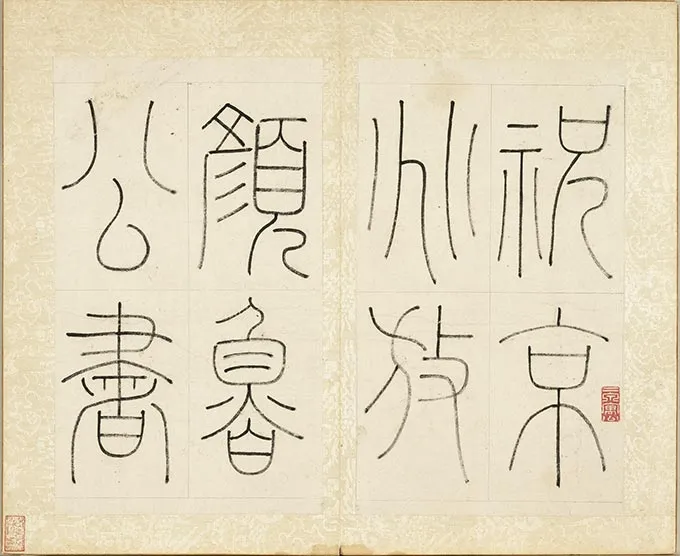 祝京
兆放
顏魯
公書